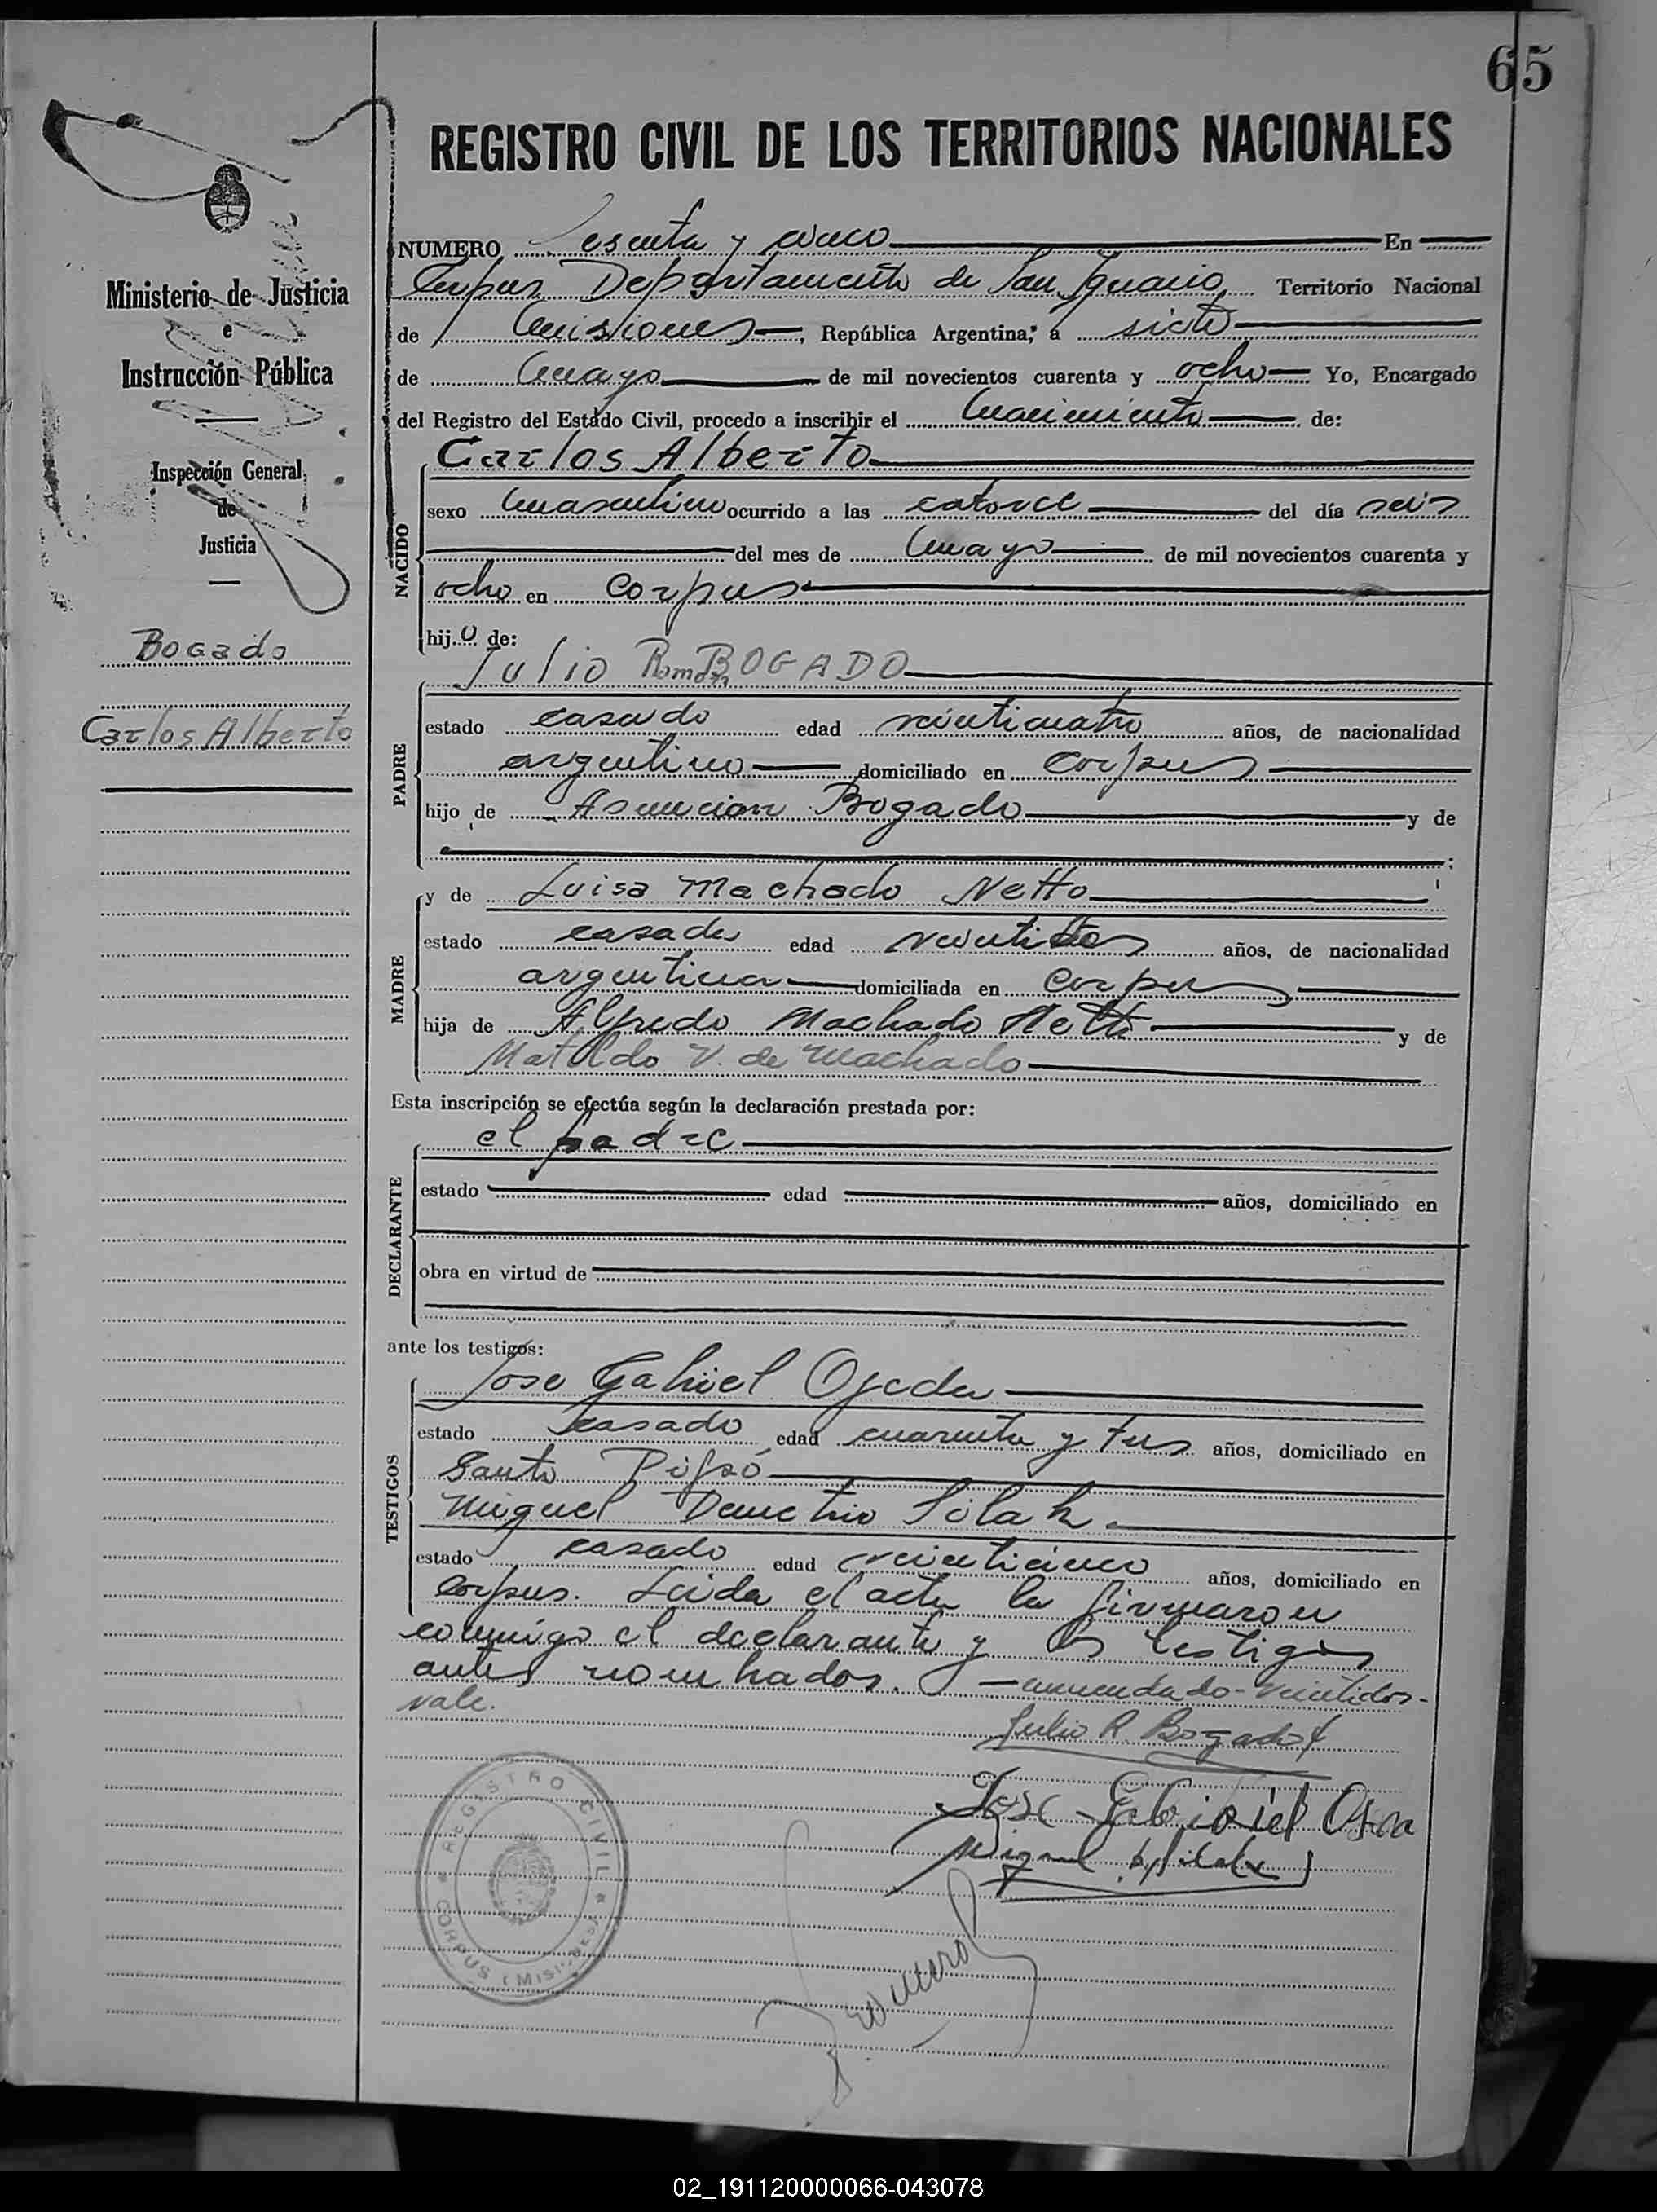 65
REGISTRO CIVIL DE LOS TERRITORIOS NACIONALES
Ministerio de Justicia
e
Instrucción Pública
Inspección General
de
Justicia
Bogado
Carlos Alberto
NUMERO Sesenta y cinco En
Corpus Departamento de San Ignacio Territorio Nacional
de Misiones, República Argentina, a siete
de mayo de mil novecientos cuarenta y ocho Yo, Encargado
del Registro del Estado Civil, procedo a inscribir el nacimiento de:
NACIDO
Carlos Alberto
sexo masculino ocurrido a las catorce del día seis
del mes de mayo de mil novecientos cuarenta y
ocho en Corpus
hijo de:
PADRE
Julio Román BOGADO
estado casado edad veinticuatro años, de nacionalidad
argentino domiciliado en Corpus
hijo de Asuncion Bogado y de
;
MADRE
y de Luisa Machado Netto
estado casada edad veintidos años, de nacionalidad
argentina domiciliada en Corpus
hija de Alfredo Machado Netto y de
Matildo V. de Machado
Esta inscripción se efectúa según la declaración prestada por:
DECLARANTE
el padre
estado edad años, domiciliado en
obra en virtud de
ante los testigos:
TESTIGOS
Jose Gabriel Ojeda
estado casado edad cuarenta y tres años, domiciliado en
Santo Pipó
Miguel Demetrio Silak.
estado casado edad veinticinco años, domiciliado en
Corpus. Leida el acta la firmaron
conmigo el declarante y los testigos
antes nombrados. — enmendado - veintidos -
vale.
Julio R. Bogado
Jose Gabriel
Miguel
REGISTRO CIVIL
CORPUS (MISIONES)
02_191120000066-043078